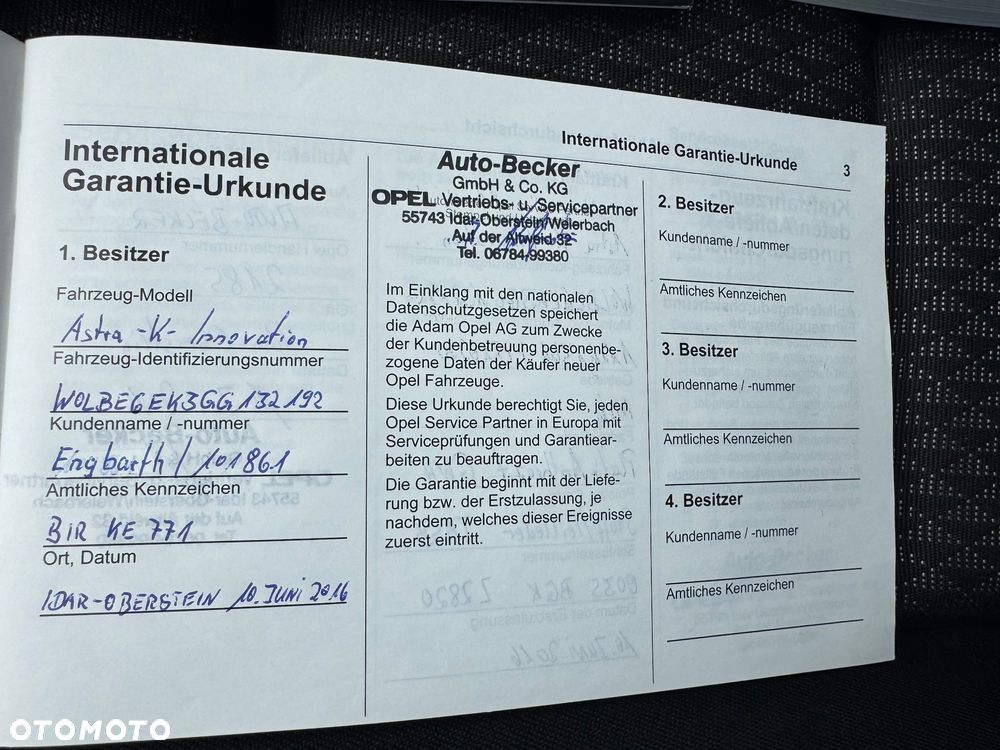 Internationale Garantie-Urkunde 3
Internationale
Garantie-Urkunde
1. Besitzer
Fahrzeug-Modell
Astra -K- Innovation
Fahrzeug-Identifizierungsnummer
WOLBE6EK3GG132192
Kundenname / -nummer
Engbarth / 101861
Amtliches Kennzeichen
BIR KE 771
Ort, Datum
IDAR-OBERSTEIN 10. JUNI 2016
Auto-Becker
GmbH & Co. KG
OPEL Vertriebs- u. Servicepartner
55743 Idar-Oberstein/Weierbach
Auf der Altweid 32
Tel. 06784/99380
Im Einklang mit den nationalen
Datenschutzgesetzen speichert
die Adam Opel AG zum Zwecke
der Kundenbetreuung personenbe-
zogene Daten der Käufer neuer
Opel Fahrzeuge.
Diese Urkunde berechtigt Sie, jeden
Opel Service Partner in Europa mit
Serviceprüfungen und Garantiear-
beiten zu beauftragen.
Die Garantie beginnt mit der Liefe-
rung bzw. der Erstzulassung, je
nachdem, welches dieser Ereignisse
zuerst eintritt.
2. Besitzer
Kundenname / -nummer
Amtliches Kennzeichen
3. Besitzer
Kundenname / -nummer
Amtliches Kennzeichen
4. Besitzer
Kundenname / -nummer
Amtliches Kennzeichen
OTOMOTO